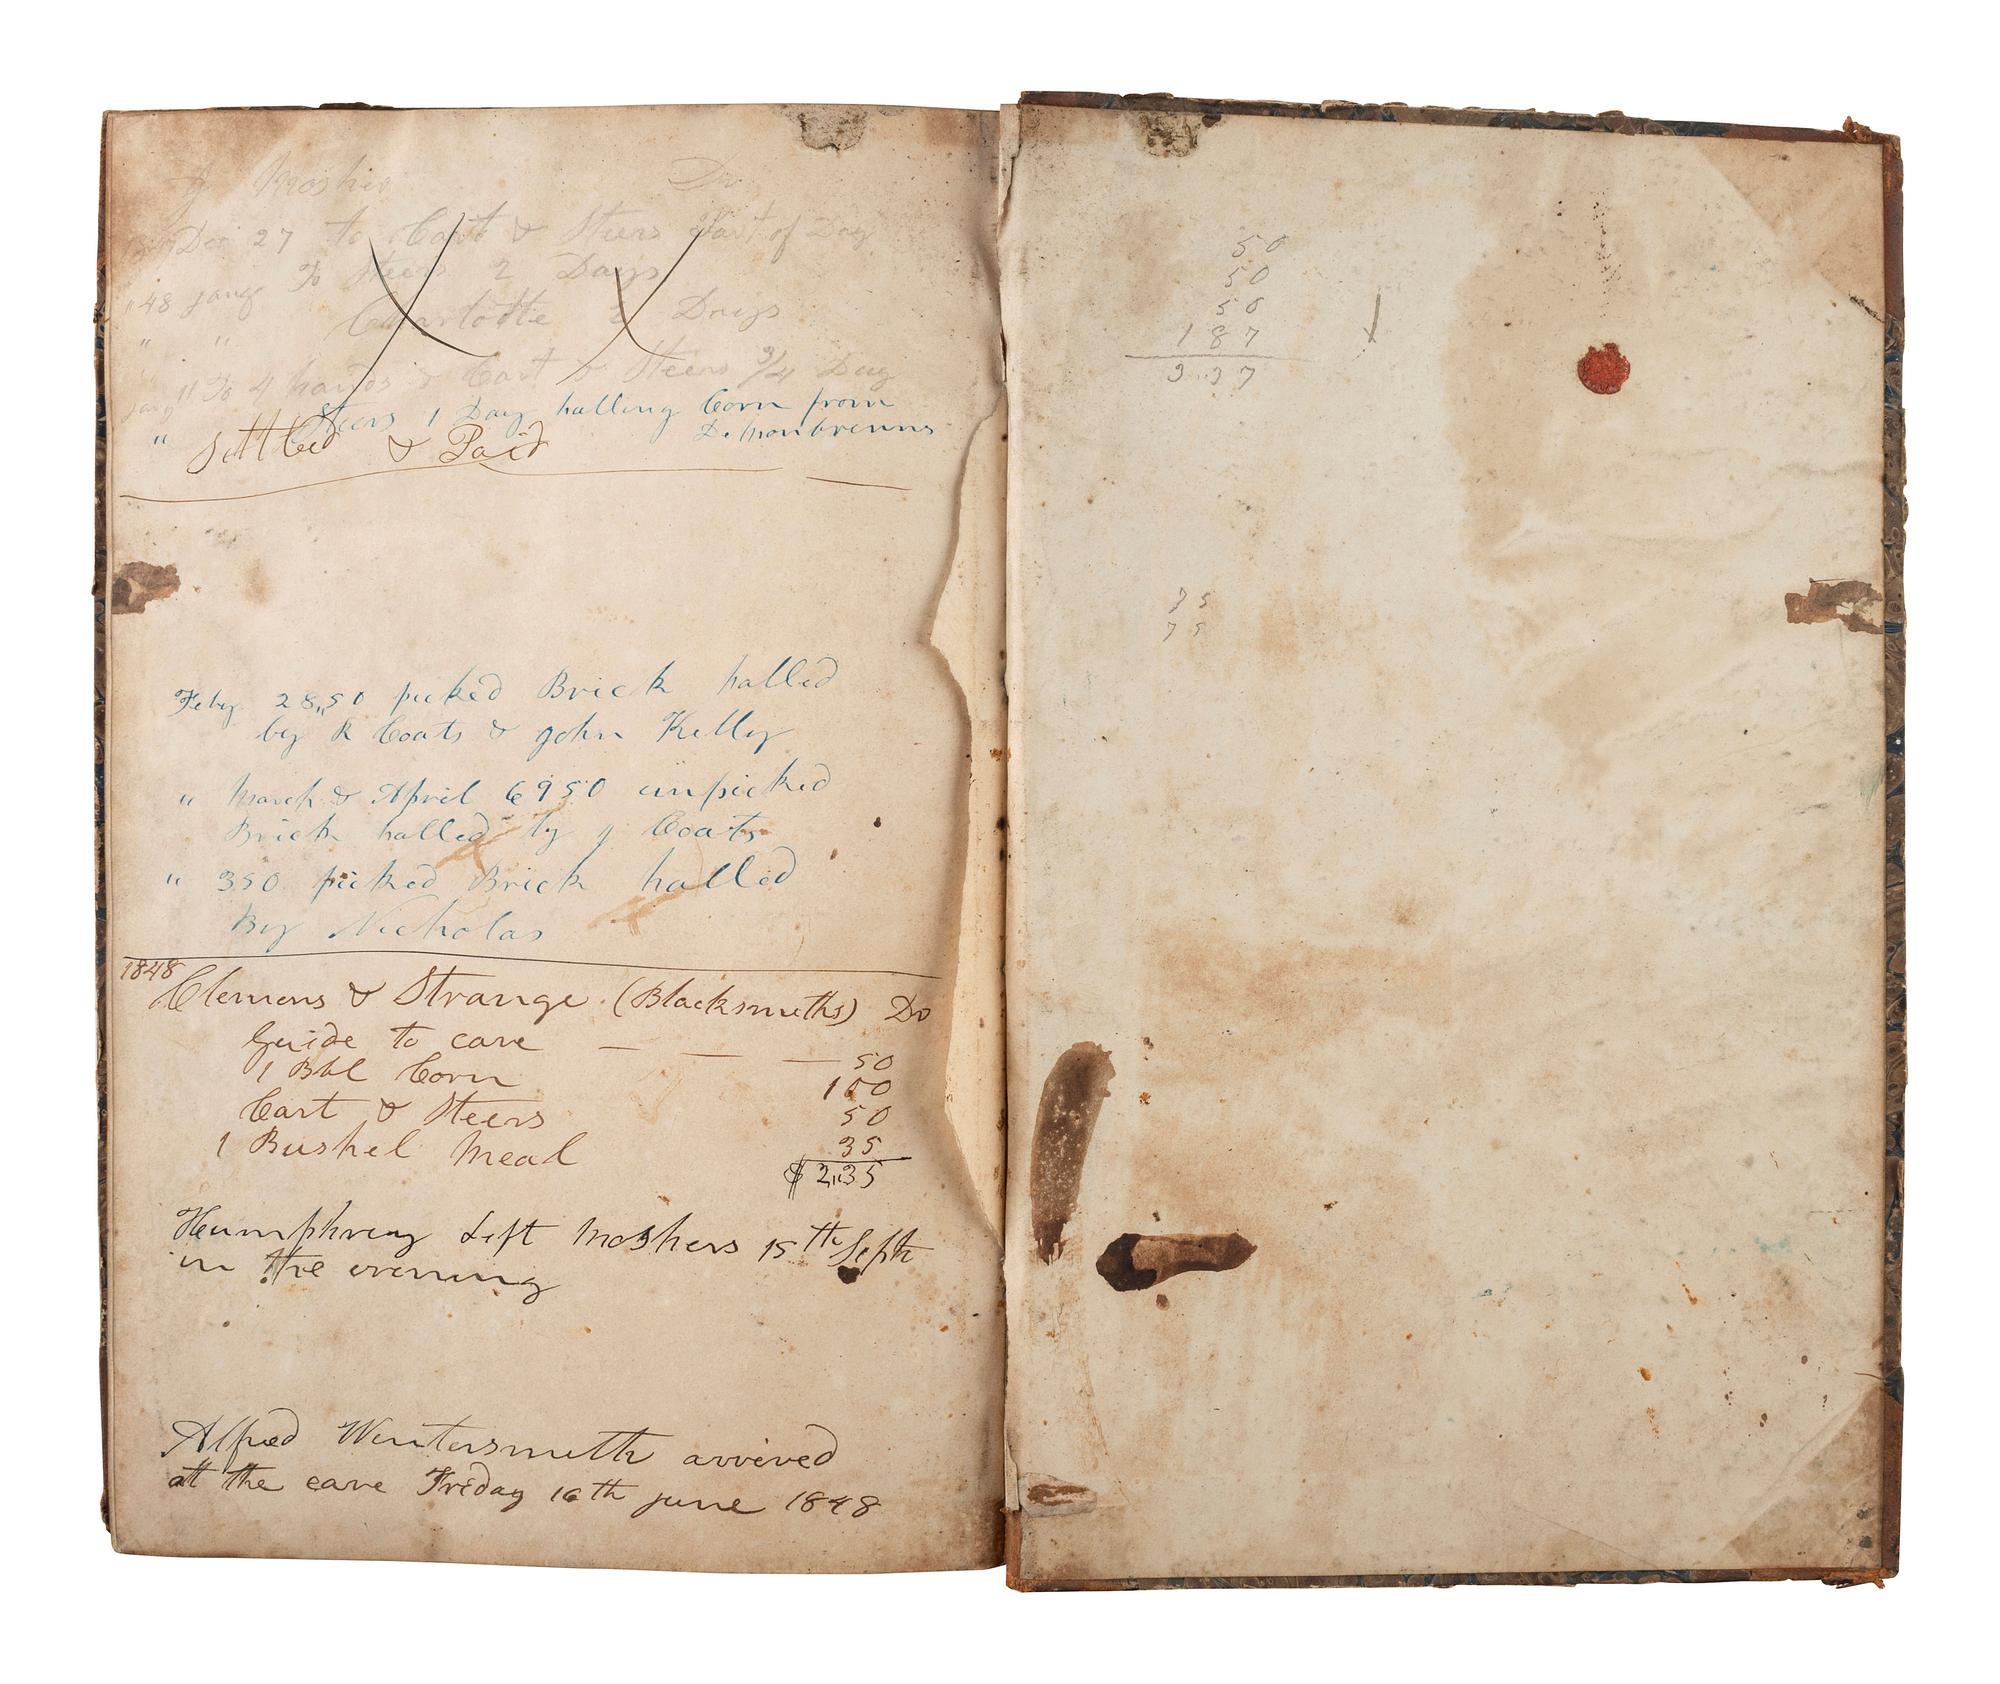 J Mosher Dr
1847 Dec 27 to Cart & Steers Part of Day
" 48 Jany To Steers 2 Days
" " 2 Days
Jany 11 To 4 hands & Cart & Steers 3/4 Day
" Steers 1 Day halling Corn from
Demonbreuns
Settled & Paid
Feby 28,,50 picked Brick halled
by R Coats & John Kelly
" March & April 6950 unpicked
Brick halled by J Coats
" 350 picked Brick halled
By Nicholas
1848
Clemons & Strange (Blacksmiths) Dr
Guide to cave — — — 50
1 Bbl Corn 100
Cart & Steers 50
1 Bushel Meal 35
$ 2,,35
Humphrey Left Moshers 15th Sept
in the evening
Alfred Wintersmith arrived
at the cave Friday 16th June 1848
50
50
50
187
3.37
75
75